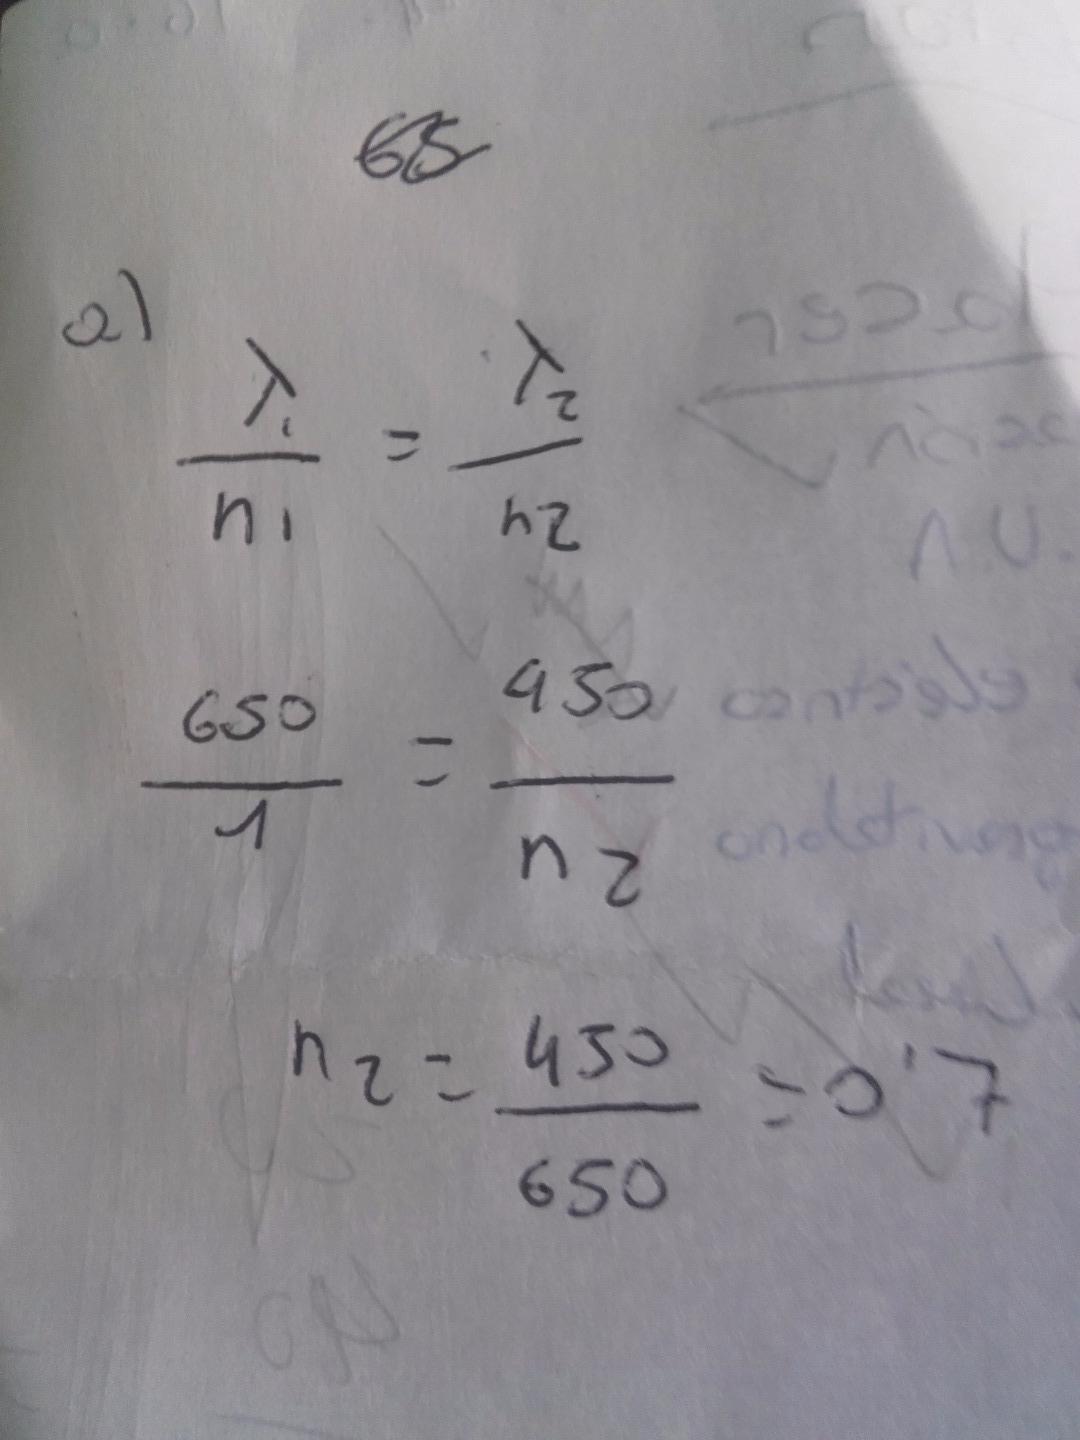 65
a)
λ1/n1 = λ2/n2
650/1 = 450/n2
n2 = 450/650 = 0'7